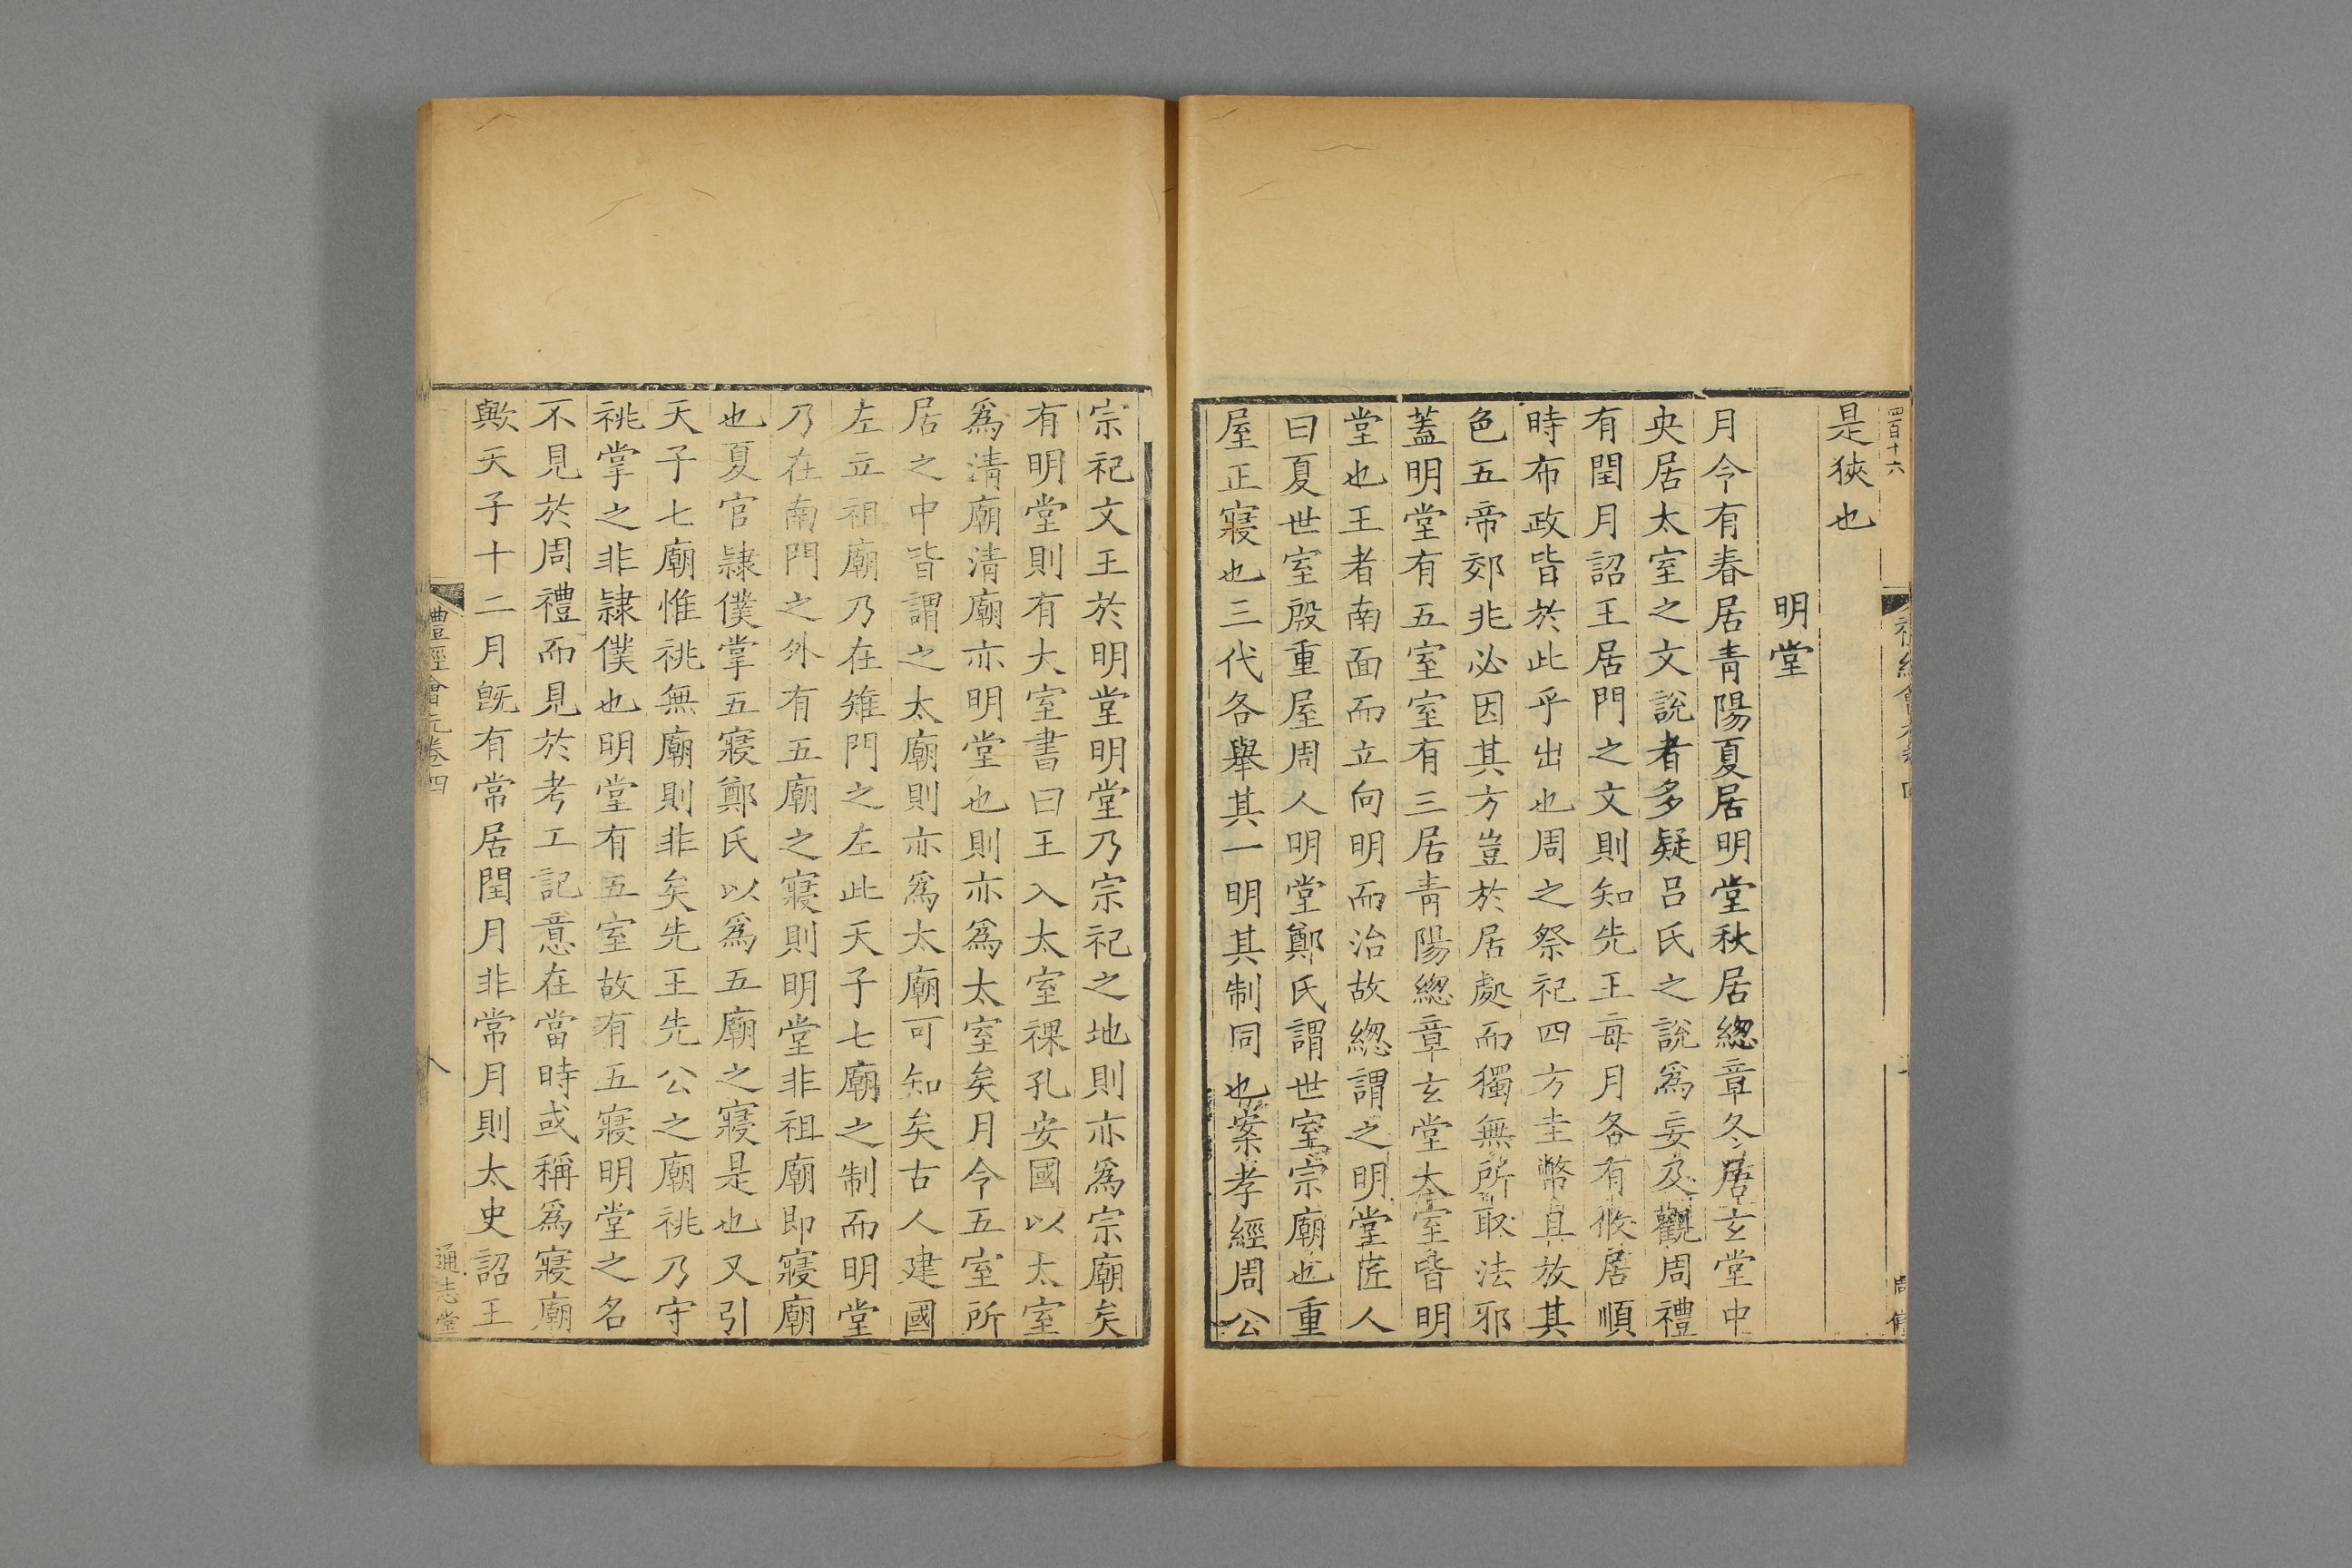 四百十六
是狹也
明堂
月令有春居青陽夏居明堂秋居緫章冬居玄堂中
央居太室之文說者多疑吕氏之說爲妄及觀周禮
有閏月詔王居門之文則知先王每月各有攸居順
時布政皆於此乎出也周之祭祀四方圭幣且放其
色五帝郊兆必因其方豈於居處而獨無所取法邪
蓋明堂有五室室有三居青陽緫章玄堂太室皆明
堂也王者南面而立向明而治故緫謂之明堂匠人
曰夏世室殷重屋周人明堂鄭氏謂世室宗廟也重
屋正寢也三代各舉其一明其制同也案孝經周公
宗祀文王於明堂明堂乃宗祀之地則亦爲宗廟矣
有明堂則有大室書曰王入太室祼孔安國以太室
爲清廟清廟亦明堂也則亦爲太室矣月令五室所
居之中皆謂之太廟則亦爲太廟可知矣古人建國
左立祖廟乃在雉門之左此天子七廟之制而明堂
乃在南門之外有五廟之寢則明堂非祖廟即寢廟
也夏官隷僕掌五寢鄭氏以爲五廟之寢是也又引
天子七廟惟祧無廟則非矣先王先公之廟祧乃守
祧掌之非隷僕也明堂有五室故有五寢明堂之名
不見於周禮而見於考工記意在當時或稱爲寢廟
歟天子十二月旣有常居閏月非常月則太史詔王
禮經會元卷四
八
通志堂